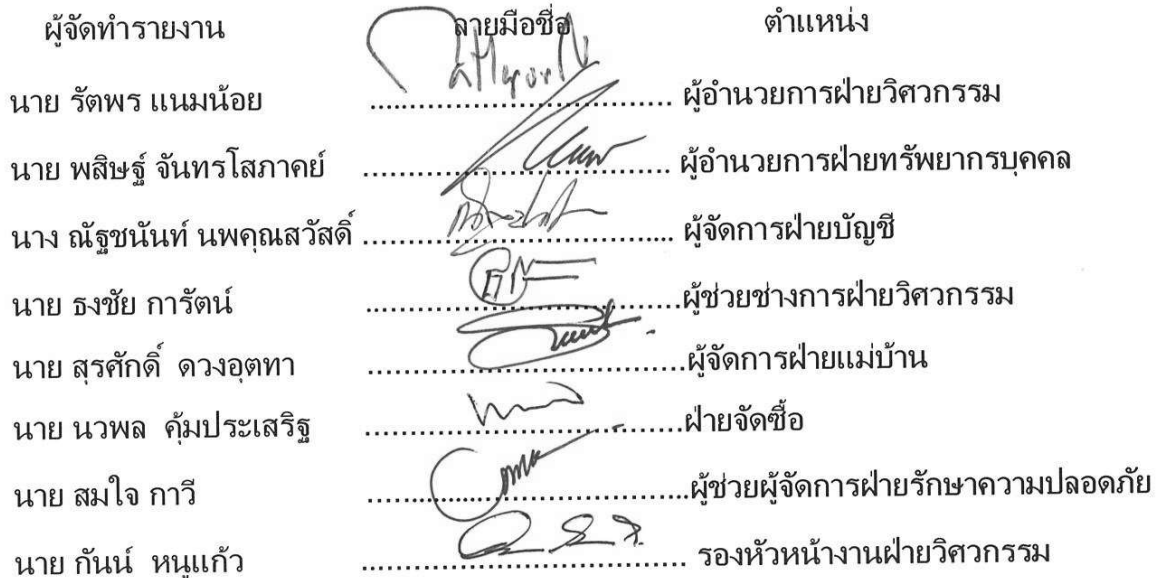 ผู้จัดทำรายงาน ลายมือชื่อ ตำแหน่ง
นาย รัตพร แนมน้อย ........................................ ผู้อำนวยการฝ่ายวิศวกรรม
นาย พสิษฐ์ จันทรโสภาคย์ ........................................ ผู้อำนวยการฝ่ายทรัพยากรบุคคล
นาง ณัฐชนันท์ นพคุณสวัสดิ์ ........................................ ผู้จัดการฝ่ายบัญชี
นาย ธงชัย การัตน์ ........................................ผู้ช่วยช่างการฝ่ายวิศวกรรม
นาย สุรศักดิ์ ดวงอุตทา ........................................ผู้จัดการฝ่ายแม่บ้าน
นาย นวพล คุ้มประเสริฐ ........................................ฝ่ายจัดซื้อ
นาย สมใจ กาวี ........................................ผู้ช่วยผู้จัดการฝ่ายรักษาความปลอดภัย
นาย กันน์ หนูแก้ว ........................................ รองหัวหน้างานฝ่ายวิศวกรรม